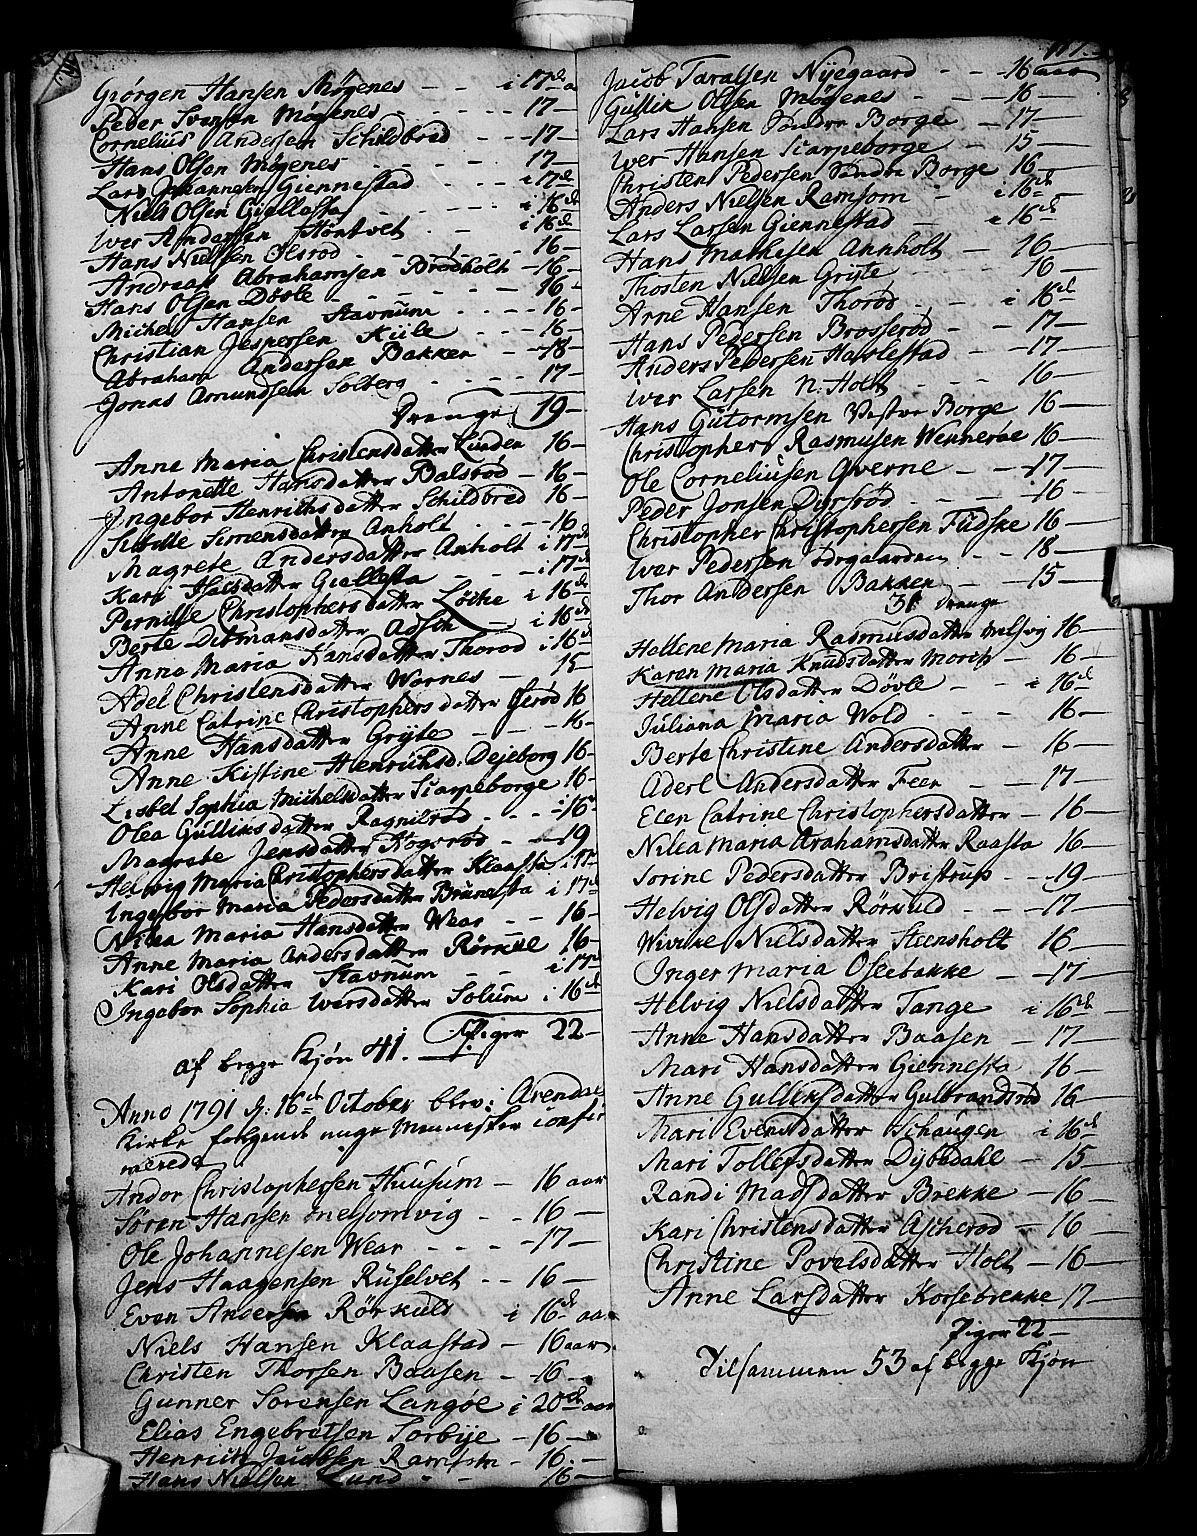 Giörgen Hansen Mögenes - - i 17de a
Peder Svensen Mögenes - - - 17 -
Cornelius Andersen Schildbred - - 17 -
Hans Olsen Mögenes - - - 17 -
Lars Johannesen Giennestad - - - i 17de
Niels Olsen Giellasta - - - i 16de
Iver Andersen Höntvet - - i 16de
Hans Nielsen Olsrod - - - 16 -
Andreas Abrahamsen Brodholt - 16 -
Hans Olsen Dövle - - - - 16 -
Michel Hansen Stavnum - - - 16 -
Christian Jespersen Kiile - - - 16 -
Abraham Andersen Bakken - - 18 -
Jonas Amundsen Solberg - - - 17 -
Drenge 19 -
Anne Maria Christensdatter Linden 16 -
Antonette Hansdatter Balsrod - 16 -
Ingebor Henrichsdatter Schildbred 16 -
Sibille Simensdatter Anholt - - - 16
Magrete Andersdatter Anholt i 17de
Kari Isaksdatter Giellesta - - - i 17de
Pernille Christophersdatter Löcke i 16de
Berte Ditmansdatter - i 16de
Anna Maria Hansdatter Thorod i 16de
Adel Christensdatter Wornes - 15 -
Anne Catrine Christophersdatter Gerod 16
Anne Hansdatter Gryte - - - 16 -
Anne Kistine Henrichsd: Dejeborg 16 -
Lisbet Sophia Michelsdatter Scarpeborge 16 -
Olea Gulliksdatter Ragnilrod - - - 16 -
Magrete Jensdatter Hogsrod - - 19
Helwig Maria Christophersdatter Klaasta i 17
Ingebor Maria Pedersdatter Brunesta i 17de
Nilea Maria Hansdatter Wear - - 16 -
Anne Maria Andersdatter Rörkul 16 -
Kari Olsdatter Stavnum - - i 17de
Ingebor Sophia Iversdatter Solum i 16de
Piger 22 -
af begge Kjön 41.
Anno 1791 d: 16de October blev i Arendal
Kirke folgende unge Mennisker confir
merede
Andor Christophersen Huusum - 16 aar
Sören Hansen Melsomvig - - 16 -
Ole Johannesen Wear - - - 17 -
Jens Haagensen Ruselvet - - 16 -
Even Andersen Rörkuld i 16de aar
Niels Hansen Klaastad - 16 aar
Christen Thorsen Baasen - 16 -
Gunner Sorensen Langöe i 20de aar
Elias Engebretsen Sorbije - 16 -
Henrich Jacobsen Ramsom - 16 -
Hans Nielsen Lund - - 16 -
117.
Jacob Taralsen Nyegaard - - 16 aar
Gullik Olsen Mögenes - - - 16 -
Lars Hansen Söndre Borge - 17 -
Iver Hansen Scarpeborge - 15 -
Christen Pedersen Söndre Borge 16 -
Anders Nielsen Ramsom - i 16de
Lars Larsen Giennestad - i 16de
Hans Mathesen Annholt - 16 -
Thosten Nielsen Gryte - - 16 -
Arne Hansen Thorod - - i 16de
Hans Pedersen Brosserod - - 17 -
Anders Pedersen Haslestad - - 17 -
Iver Larsen N: Holt - - - 16 -
Hans Gutormsen Vestre Borge 16 -
Christopher Rasmusen Wennerøe 16 -
Ole Corneliusen Qverne - - 17 -
Peder Jonsen Dyrsröd - - - 16 -
Christopher Christophersen Fudske 16 -
Iver Pedersen - - 18 -
Thor Andersen Bakken - - 15 -
31 Drenge
Hellene Maria Rasmusdatter Melsvig 16 -
Karen Maria Knudsdatter - 16 -
Hellene Olsdatter Dövle - - i 16de
Juliana Maria Wold - - - 16 -
Berte Christine Andersdatter - 16 -
Aderl Andersdatter Feen - - 17 -
Elen Catrine Christophersdatter - 16 -
Nilea Maria Abrahamsdatter Raasta 16 -
Sorine Pedersdatter Bristrup - - 19 -
Helvig Olsdatter Rörkuld - - - 17 -
Wivike Nielsdatter Steensholt 16 -
Inger Maria Oseebakke - - 17 -
Helvig Nielsdatter Tange - i 16de
Anne Hansdatter Baasen - 17 -
Mari Hansdatter Giennesta - 16 -
Anne Gulliksdatter Gulbrandsrod 16 -
Mari Evensdatter Schaugen i 16de
Mari Tollefsdatter Dybedahl - 15 -
Randi Madsdatter Brekke - 16 -
Kari Christensdatter Ascherod - 16 -
Christine Povelsdatter Holt - 16 -
Anne Larsdatter Korsebrekke 17 -
Piger 22 -
Tilsammen 53 af begge Kjön